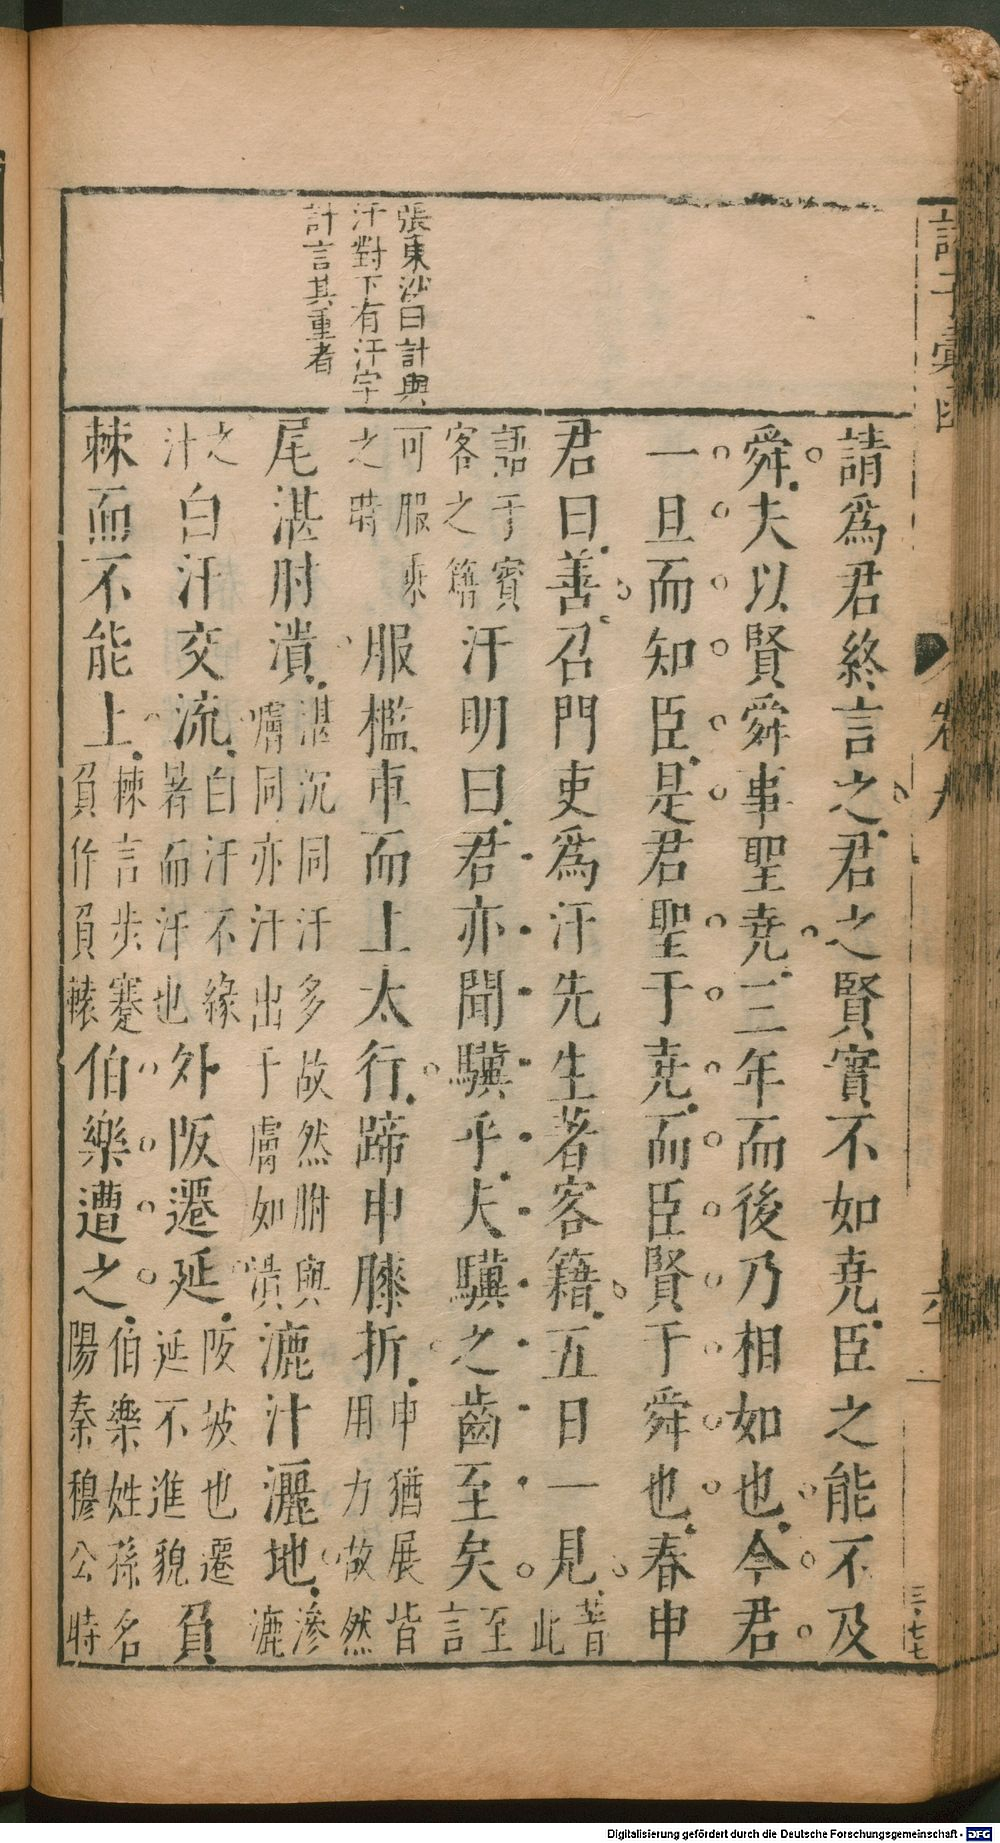 諸子彙函 卷九 六一 三七七
張東沙曰計與
汗對下有汗字
計言其重者
請爲君終言之君之賢實不如尭臣之能不及
舜夫以賢舜事聖尭三年而後乃相如也今君
一旦而知臣是君聖于尭而臣賢于舜也春申
君曰善召門吏爲汗先生著客籍五日一見著此
語于賓客之簿汗明曰君亦聞驥乎夫驥之齒至矣至言
可服乘之時服檻車而上太行蹄申膝折申猶展皆用力故然
尾湛胕潰湛沉同汗多故然胕與膚同亦汗出于膚如潰漉汁灑地滲漉
之汁白汗交流白汗不緣暑而汗也外阪遷延阪坡也遷延不進貌負
棘而不能上棘言步蹇負作負轅伯樂遭之伯樂姓孫名陽秦穆公時
Digitalisierung gefördert durch die Deutsche Forschungsgemeinschaft - DFG